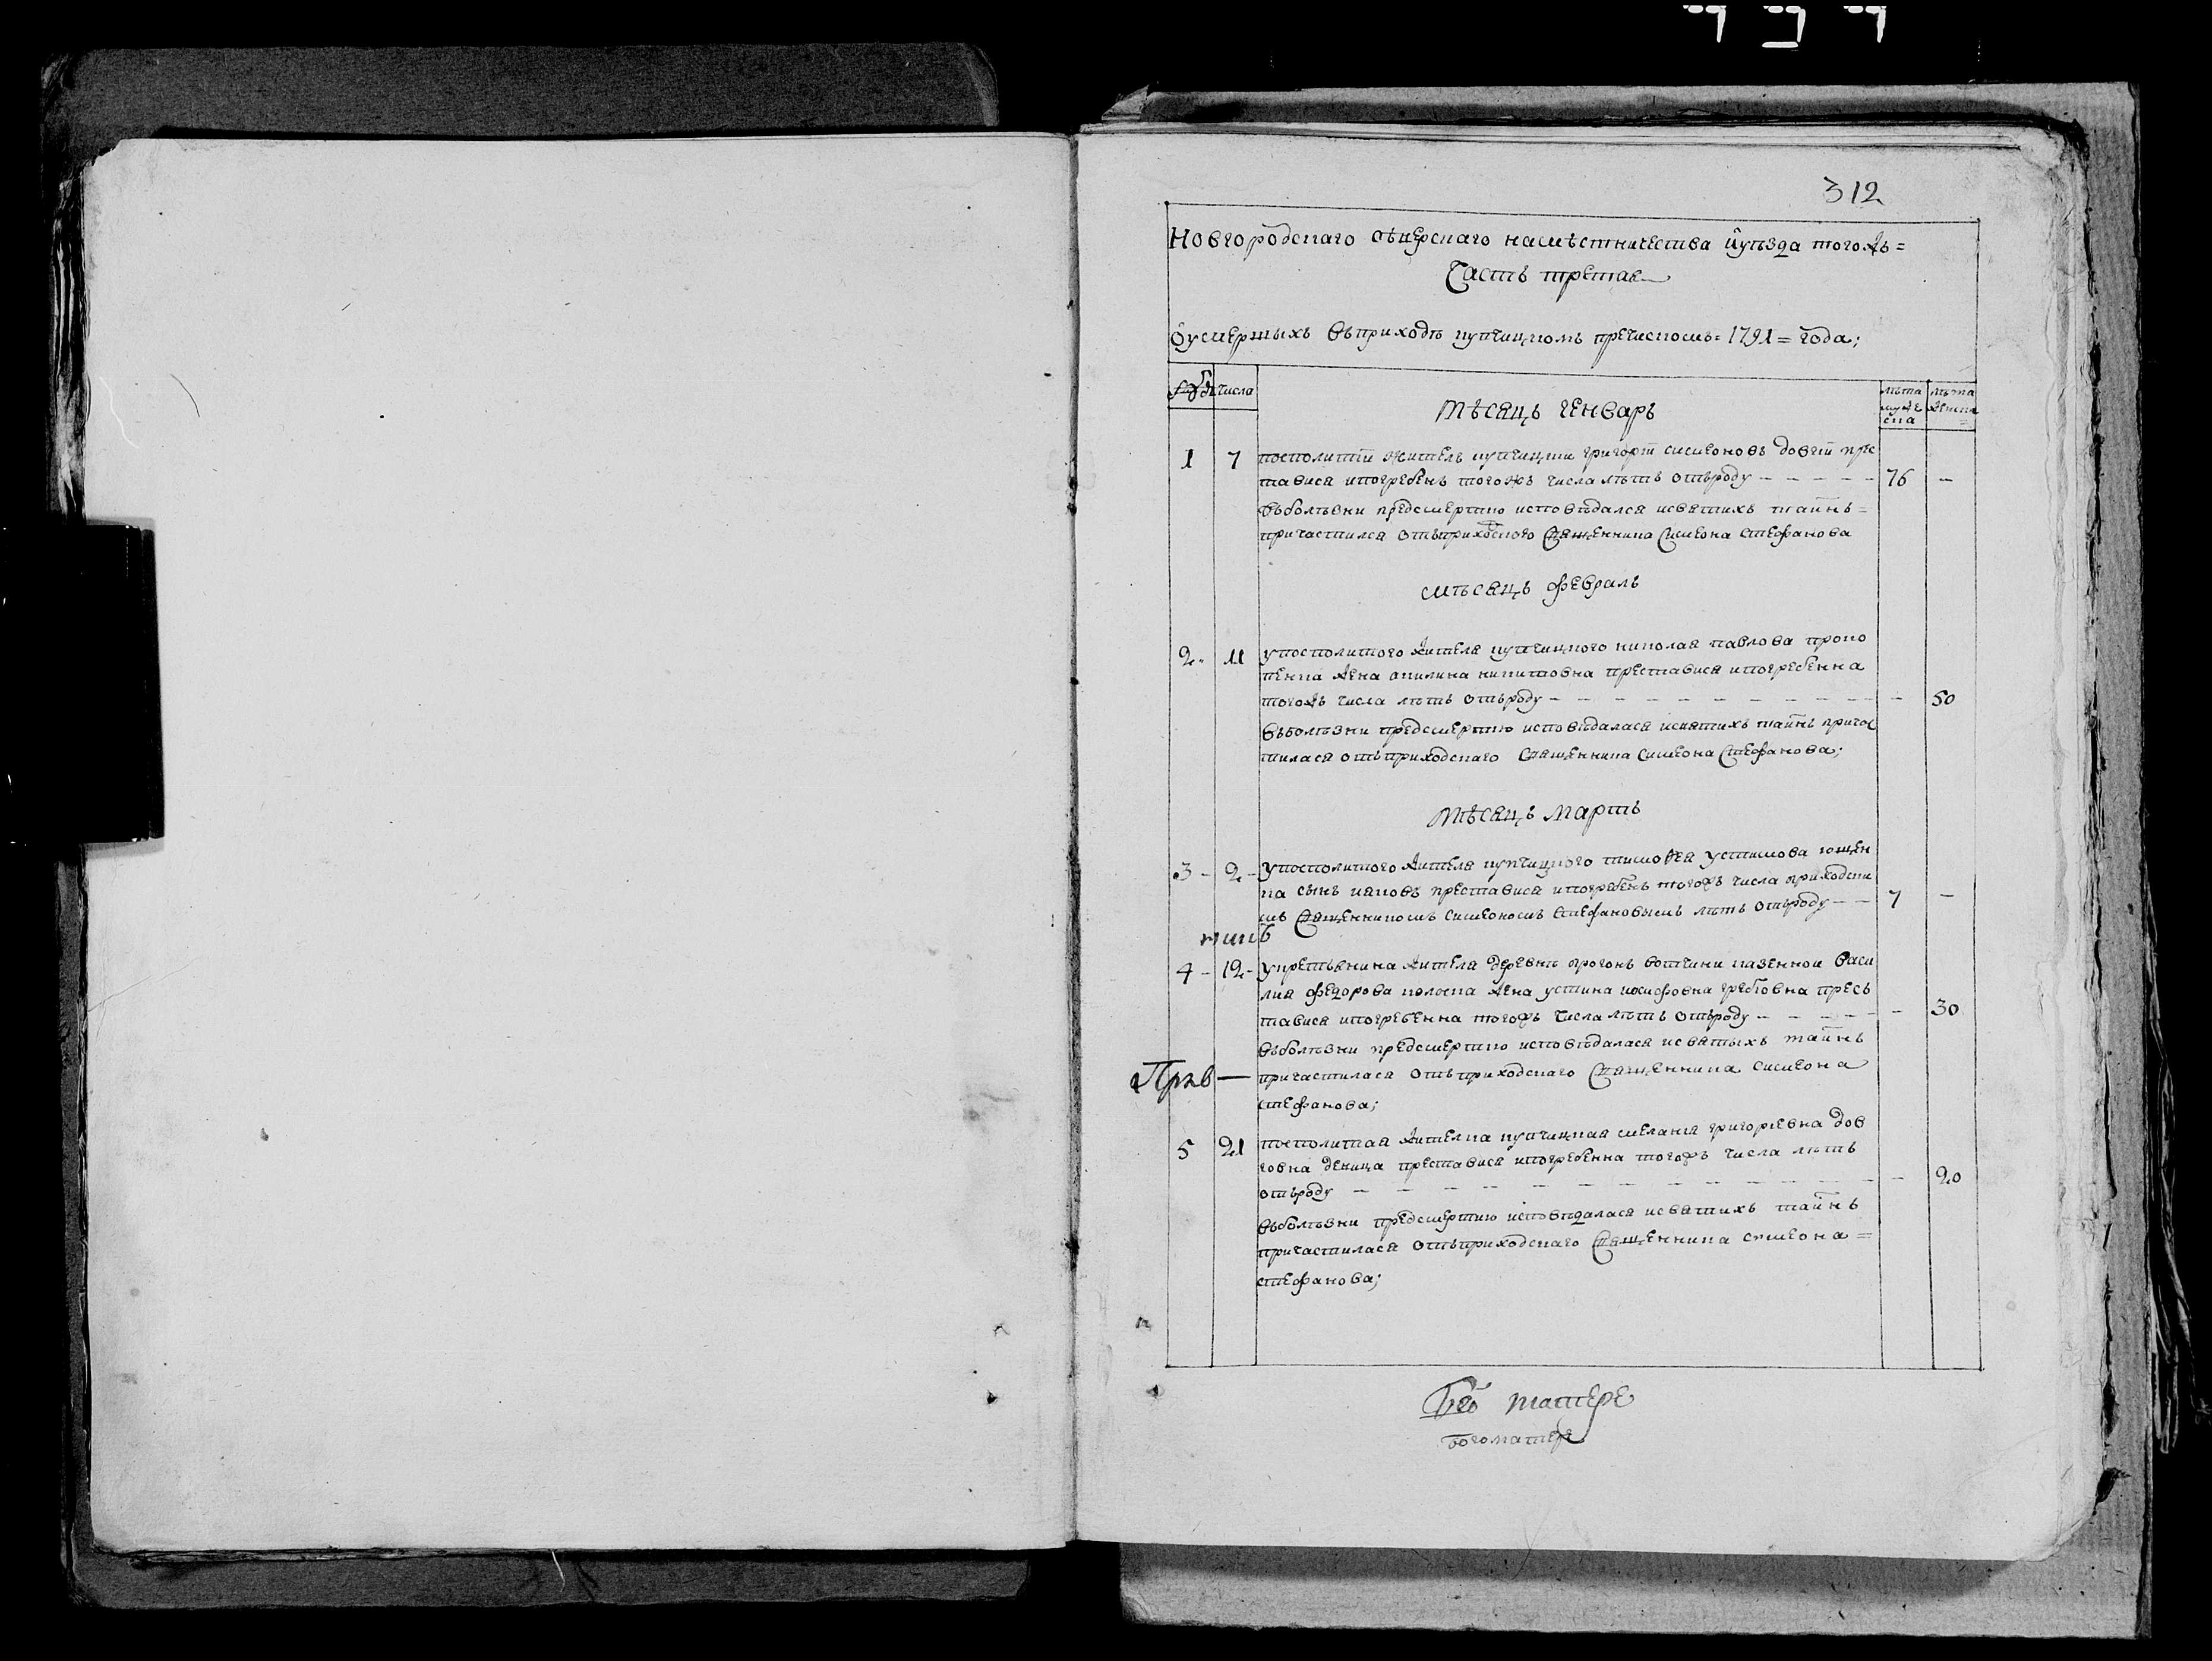 312
Новгородскаго сѣверскаго намѣстничества и уѣзда тогожъ=
Часть третая
О умершыхъ въ приходѣ купчицкомъ пречиском = 1791 = года;
числа
Мѣсяцъ генварь
лѣта муже ска
лѣта женска
1 7 посполитій житель купчицкій григорій симеоновъ довгій прес
тавися и погребенъ того жъ числа лѣтъ отъ роду - - - - - 76 -
въ болѣзни предсмертно исповѣдался и святихъ тайнъ =
причастился отъ приходского Священника Симеона Стефанова
мѣсяцъ февраль
2. 11 у посполитого жителя купчицкого николая павлова проко
пенка жена акилина никитовна преставися и погребенна
тогожъ числа лѣтъ отъ роду - - - - - - - - - - - 50
въ болѣзни предсмертно исповѣдалася и святихъ тайнъ причас
тилася отъ приходскаго Священника Симеона Стефанова;
Мѣсяцъ Мартъ
3 - 2 - у посполитого жителя купчицкого тимофея устимова ющен
ка сынъ яковъ преставися и погребенъ тогожъ числа приходски
мъ Священникомъ симеономъ Стефановымъ лѣтъ отъ роду - - 7 -
4 - 12 - у крестьянина жителя деревнѣ прогонъ вотчини казенной васи
лия федорова коloска жена устина иосифовна гребовна прес
тависа и погребенна тогожъ числа лѣтъ отъ роду - - - - - - 30
въ болѣзни предсмертно исповѣдалася и святыхъ тайнъ
причастилася отъ приходскаго Священника симеона
стефанова;
5 21 посполитая жителка купчицкая мелания григориевна дов
говна девица преставися и погребенна тогожъ числа лѣтъ
отъ роду - - - - - - - - - - - - - 20
въ болѣзни предсмертно исповѣдалася и святихъ тайнъ
причастилася отъ приходскаго Священника симеона =
стефанова;
матере
богоматере